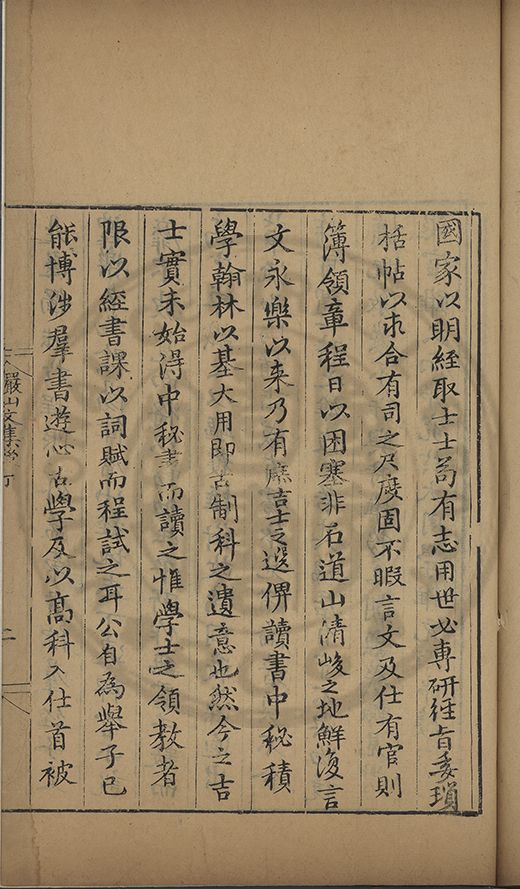 國家以明經取士士苟有志用世必專研經旨委瑣
括帖以求合有司之尺度固不暇言文及仕有官則
簿領章程日以困塞非石道山清峻之地鮮復言
文永樂以來乃有庶吉士之選俾讀書中秘積
學翰林以基大用即古制科之遺意也然今之吉
士實未始得中秘書而讀之惟學士之領教者
限以經書課以詞賦而程試之耳公自為舉子已
能博涉羣書遊心古學及以高科入仕首被
儼山文集